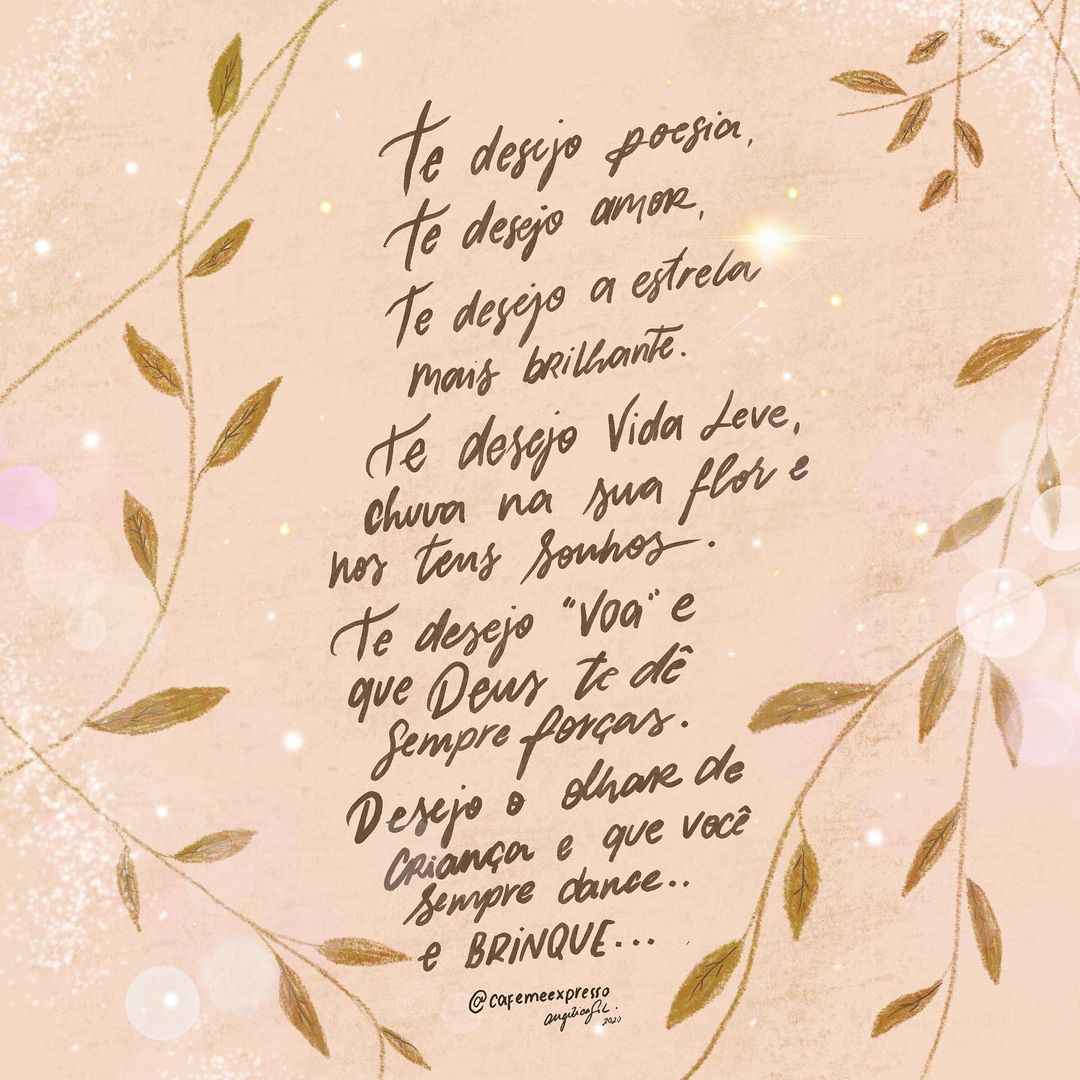 Te desejo poesia,
Te desejo amor,
Te desejo a estrela
mais brilhante.
Te desejo Vida Leve,
chuva na sua flor e
nos teus sonhos.
Te desejo "voa" e
que Deus te dê
sempre forças.
Desejo o olhar de
criança e que você
sempre dance..
e BRINQUE...
@cafemeexpresso
angélica Gil.
2020